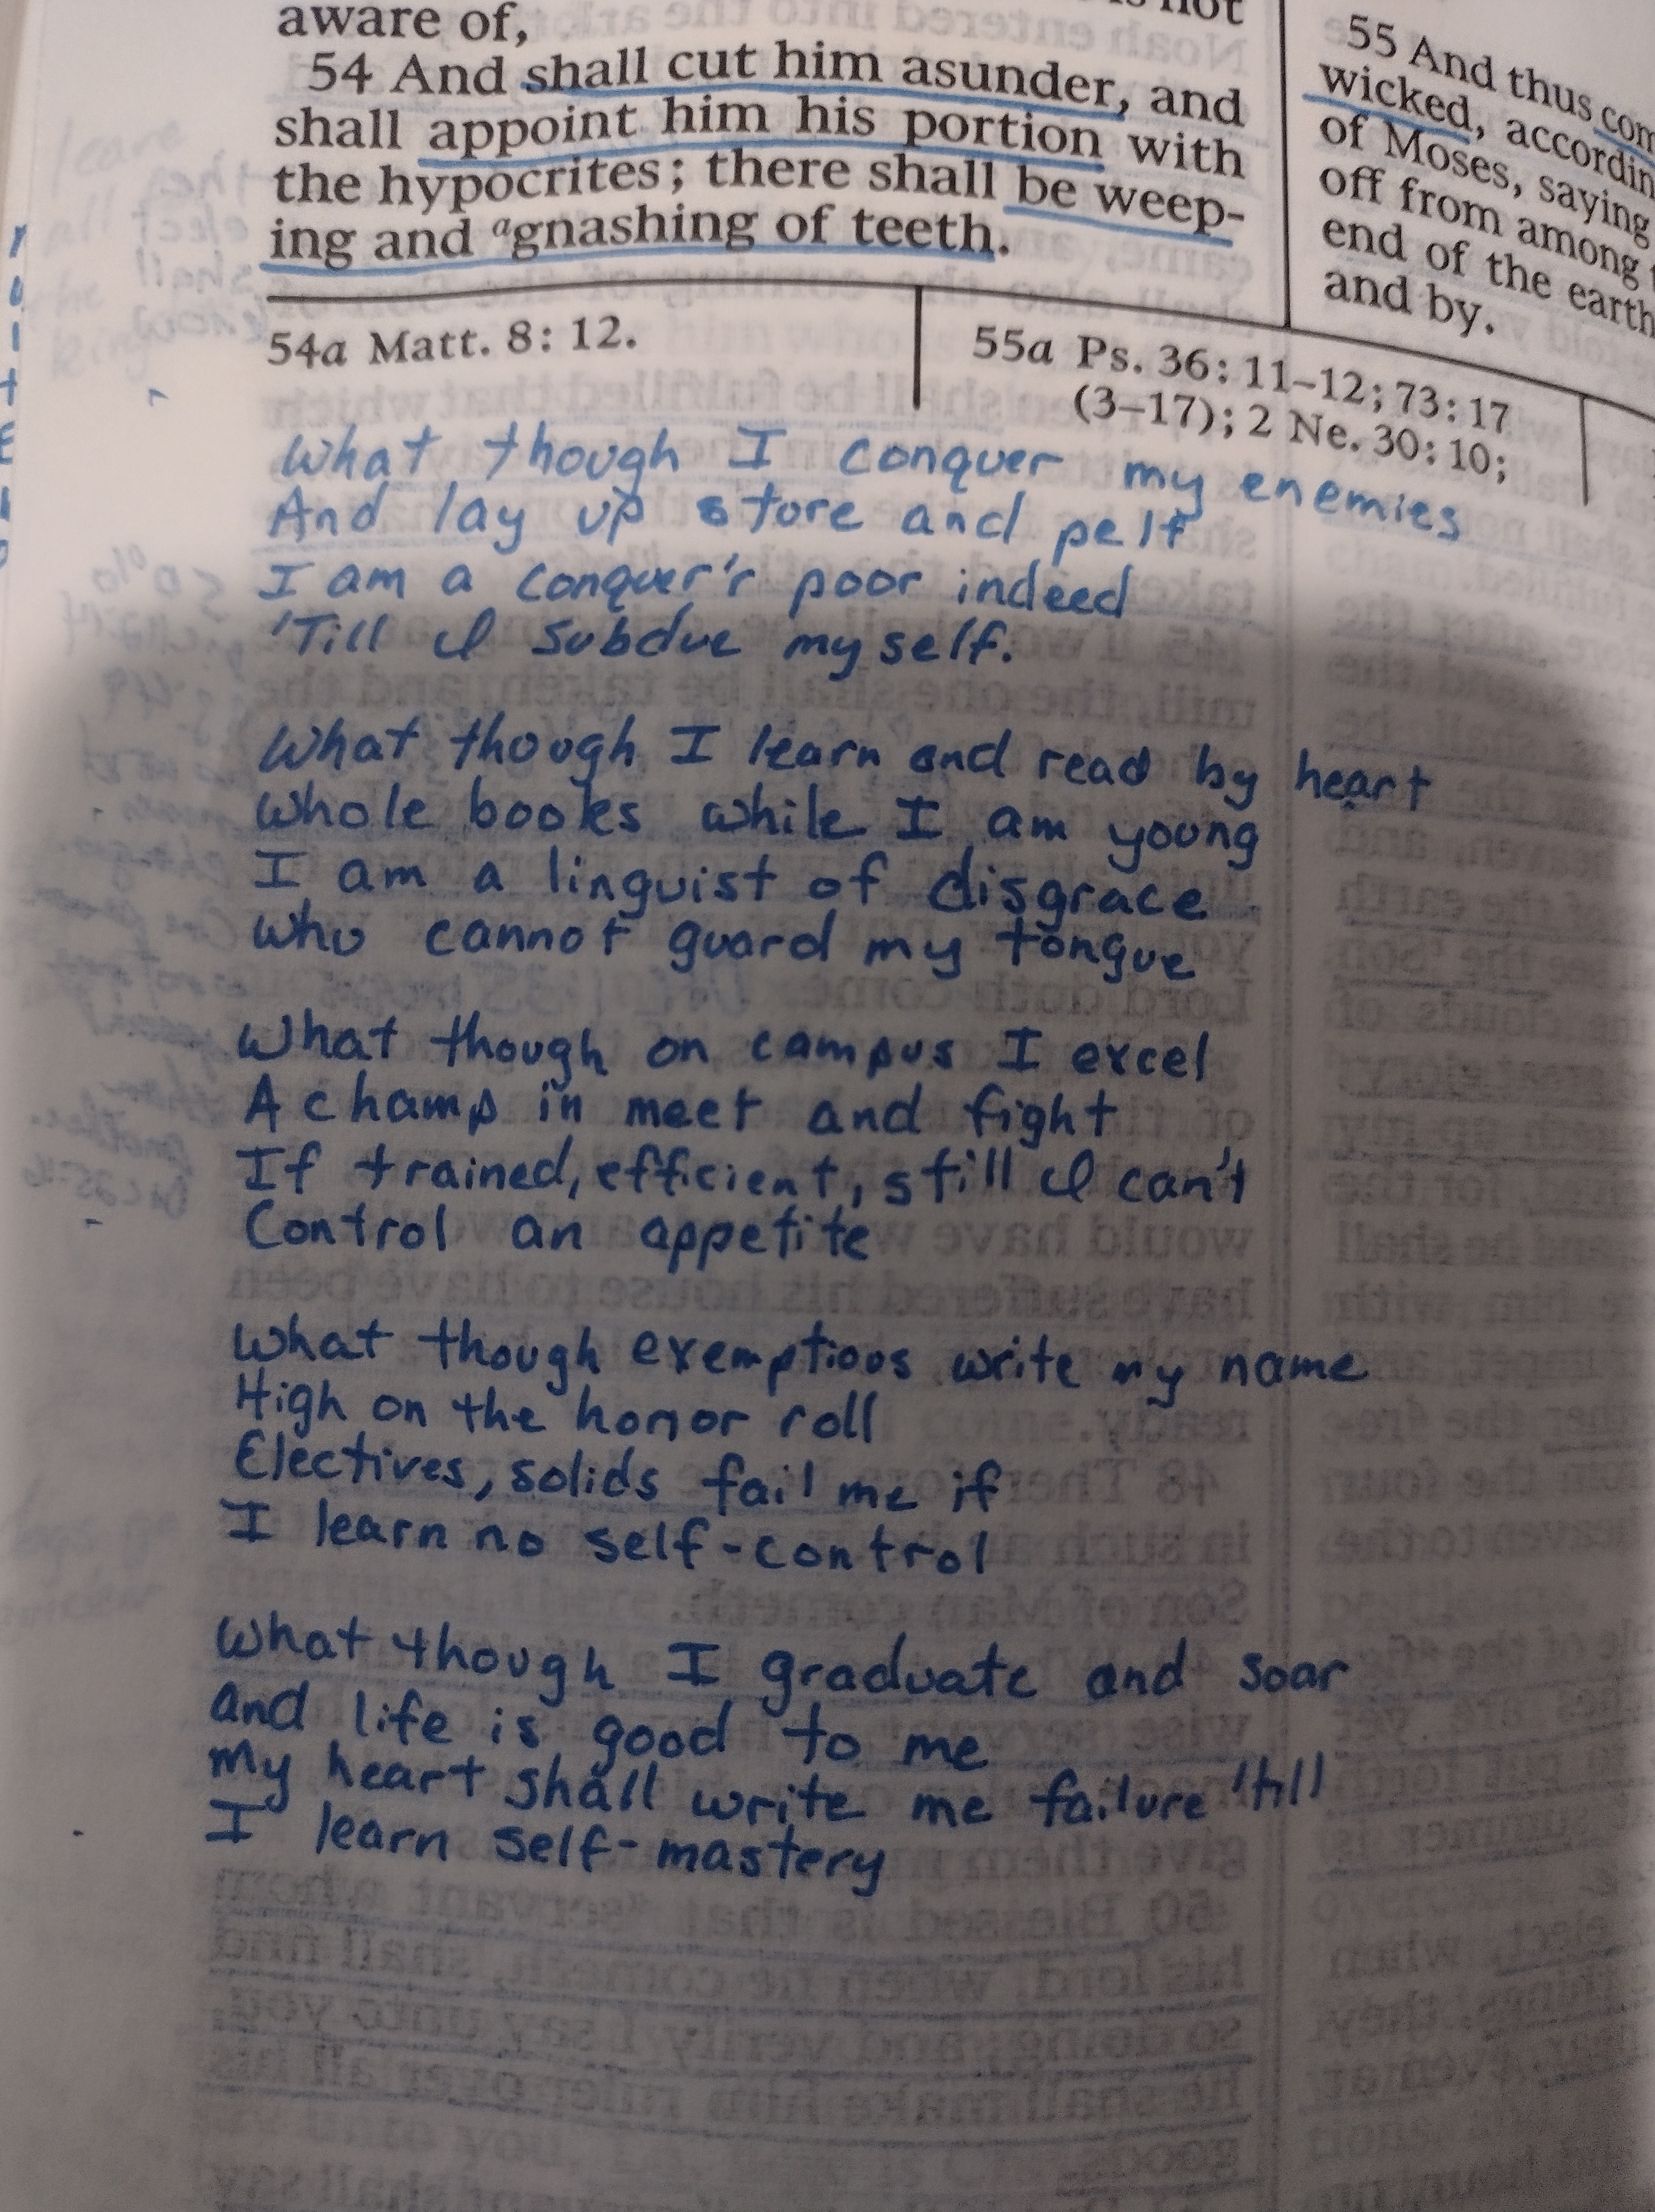 aware of,
54 And shall cut him asunder, and
shall appoint him his portion with
the hypocrites; there shall be weep-
ing and agnashing of teeth.
55 And thus
wicked,
of Moses, saying
off from among
end of the earth
and by.
54a Matt. 8: 12.
55a Ps. 36: 11–12; 73: 17
(3–17); 2 Ne. 30: 10;
What though I conquer my enemies
And lay up store and pelf
I am a conquer'r poor indeed
'Till I subdue myself.
What though I learn and read by heart
Whole books while I am young
I am a linguist of disgrace
who cannot guard my tongue
What though on campus I excel
A champ in meet and fight
If trained, efficient, still I can't
Control an appetite
What though exemptions write my name
High on the honor roll
Electives, solids fail me if
I learn no self-control
What though I graduate and soar
and life is good to me
My heart shall write me failure 'till
I learn self-mastery